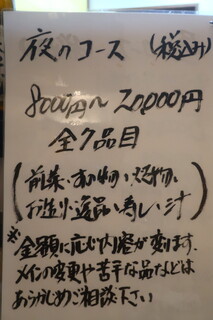 夜のコース (税込み)
8000円〜20,000円
全7品目
(前菜、すの物、焼物、
お造り、逸品、寿し、汁)
※金額に応じ内容が変ります。
メインの変更や苦手な品などは
あらかじめご相談下さい